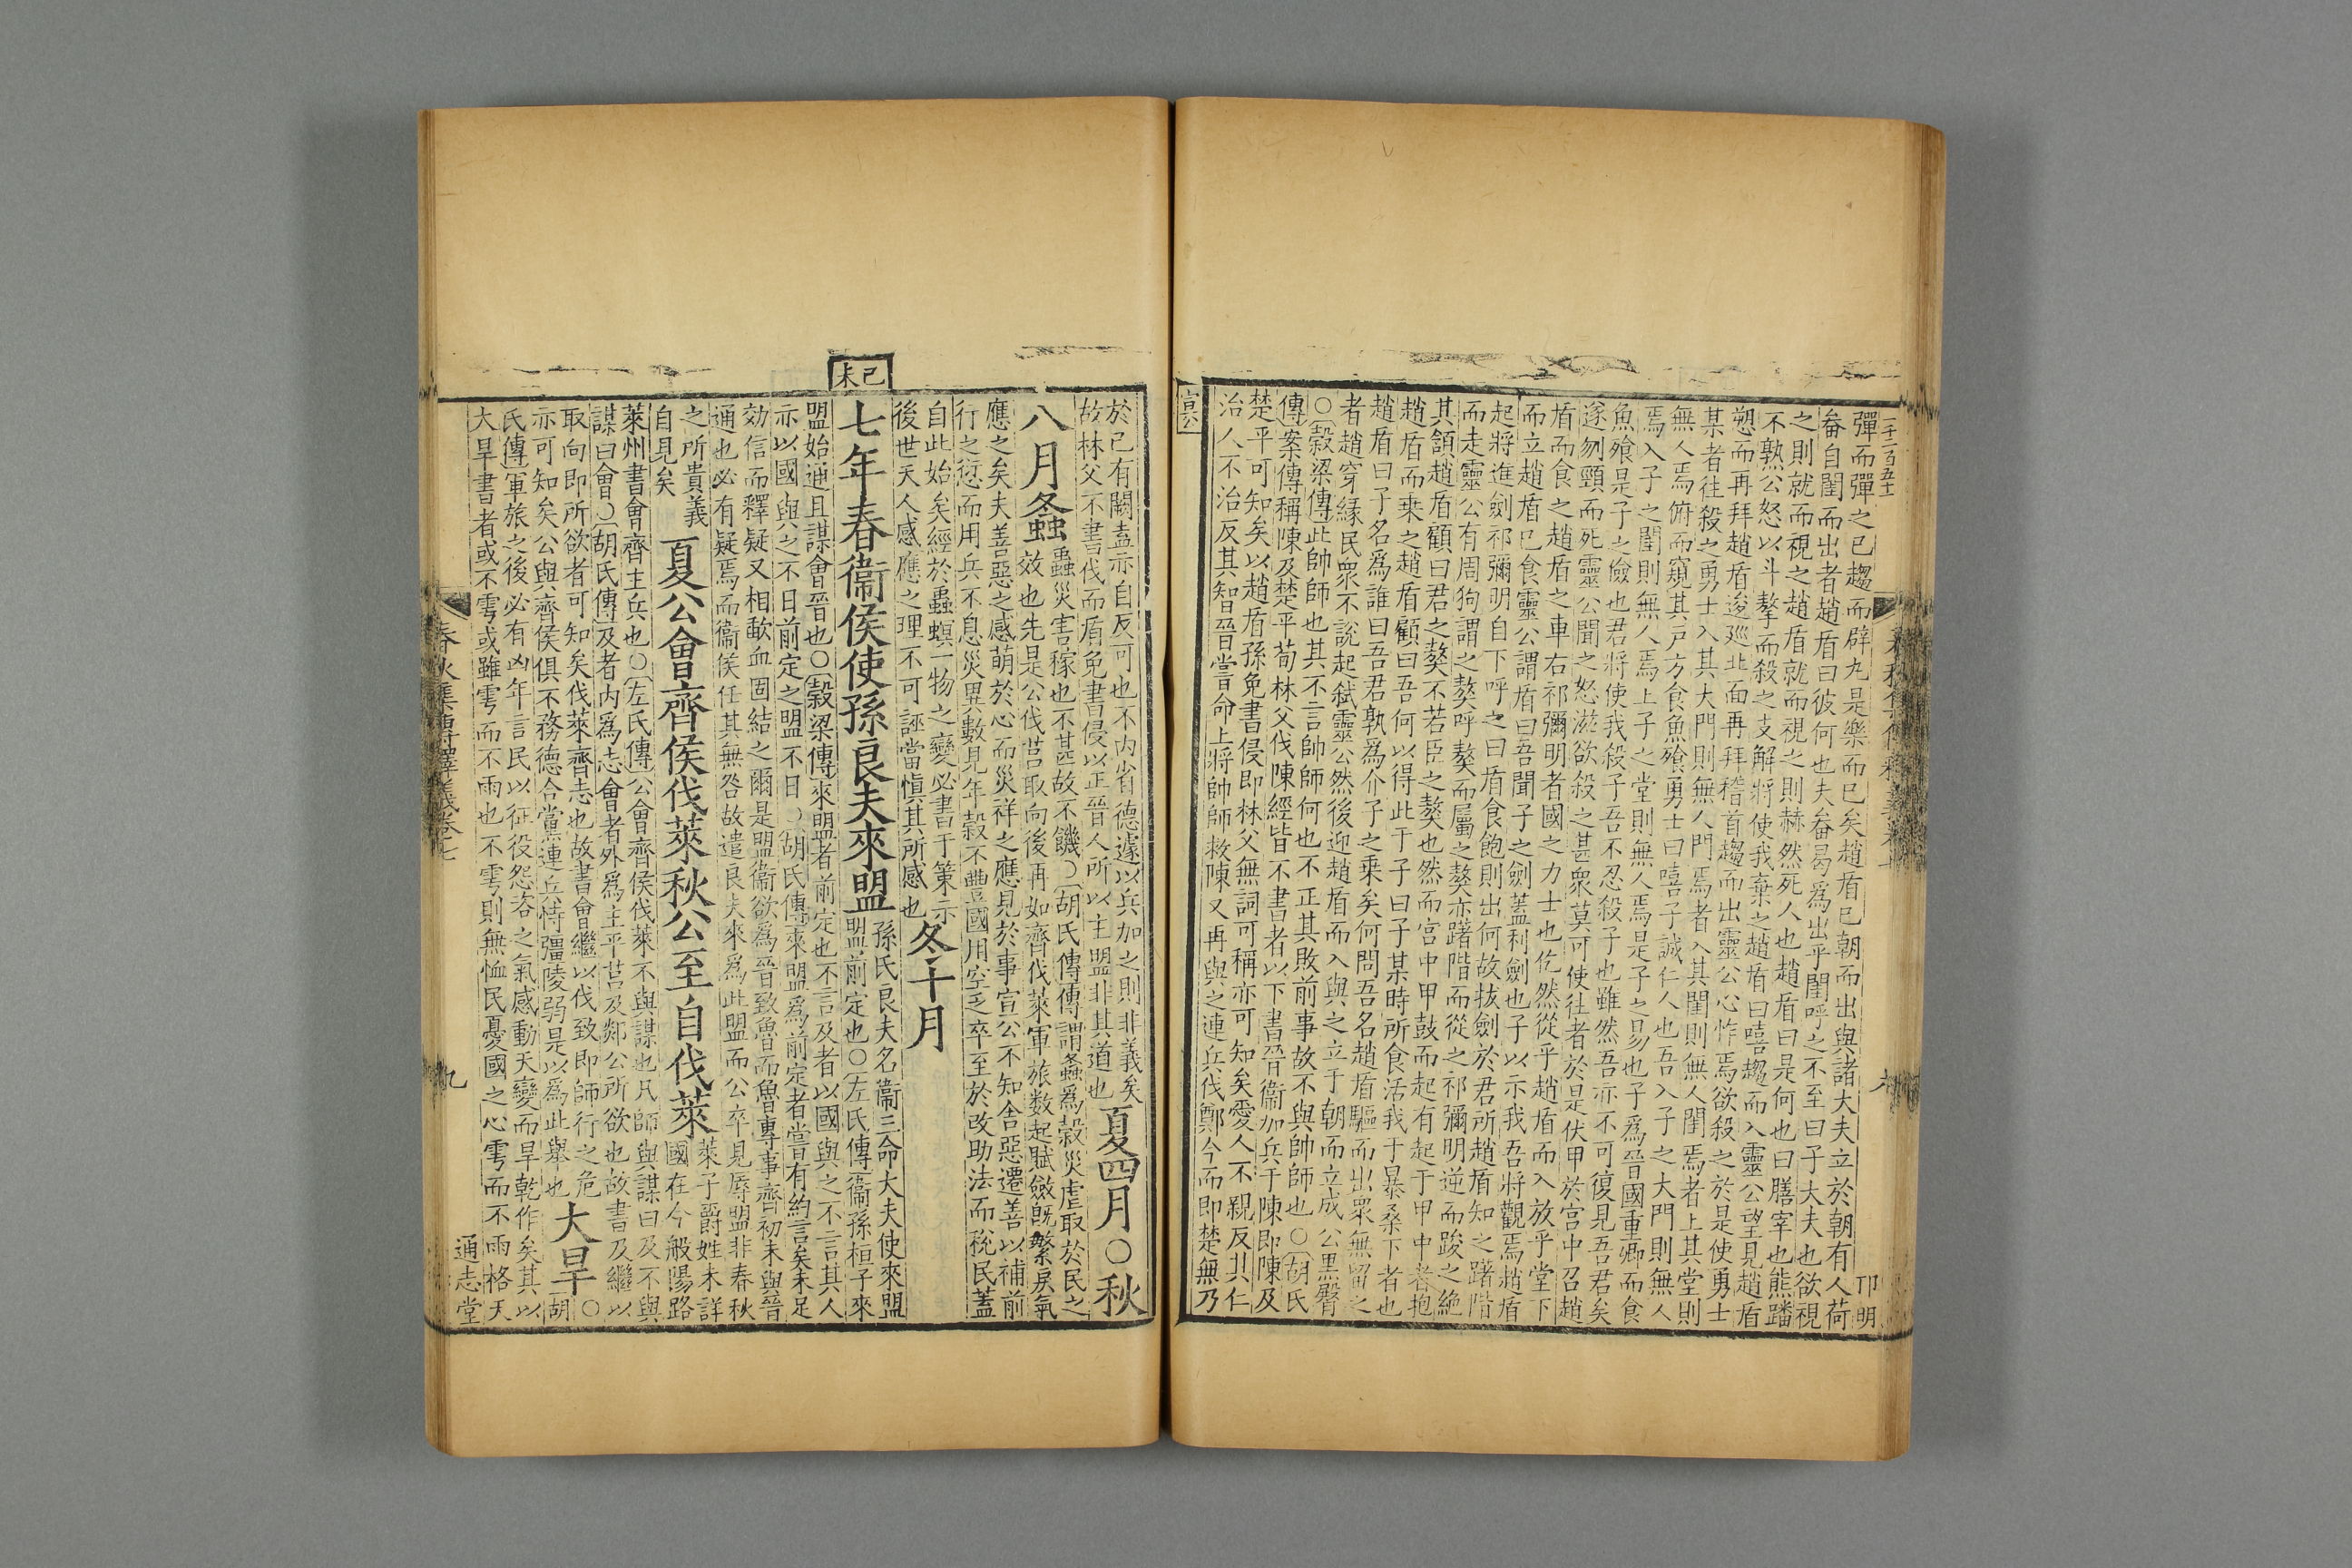 一千一百五十
彈而彈之已趨而辟丸是樂而已矣趙盾已朝而出與諸大夫立於朝有人荷
畚自閨而出者趙盾曰彼何也夫畚曷爲出乎閨呼之不至曰子大夫也欲視
之則就而視之趙盾就而視之則赫然死人也趙盾曰是何也曰膳宰也熊蹯
不熟公怒以斗摮而殺之支解將使我棄之趙盾曰嘻趨而入靈公望見趙盾
愬而再拜趙盾逡巡北面再拜稽首趨而出靈公心怍焉欲殺之於是使勇士
某者往殺之勇士入其大門則無人門焉者入其閨則無人閨焉者上其堂則
無人焉俯而窺其戶方食魚飱勇士曰嘻子誠仁人也吾入子之大門則無人
焉入子之閨則無人焉上子之堂則無人焉是子之易也子爲晉國重卿而食
魚飱是子之儉也君將使我殺子吾不忍殺子也雖然吾亦不可復見吾君矣
遂刎頸而死靈公聞之怒滋欲殺之甚衆莫可使往者於是伏甲於宮中召趙
盾而食之趙盾之車右祁彌明者國之力士也仡然從乎趙盾而入放乎堂下
而立趙盾已食靈公謂盾曰吾聞子之劍蓋利劍也子以示我吾將觀焉趙盾
起將進劍祁彌明自下呼之曰盾食飽則出何故拔劍於君所趙盾知之躇階
而走靈公有周狗謂之獒呼獒而屬之獒亦躇階而從之祁彌明逆而踆之絕
其頷趙盾顧曰君之獒不若臣之獒也然而宮中甲鼓而起有起于甲中者抱
趙盾而乗之趙盾顧曰吾何以得此于子曰子某時所食活我于暴桑下者也
趙盾曰子名爲誰曰吾君孰爲介子之乗矣何問吾名趙盾驅而出衆無留之
者趙穿緣民衆不說起弒靈公然後迎趙盾而入與之立于朝而立成公黒臀
○穀梁傳此帥師也其不言帥師何也不正其敗前事故不與帥師也○胡氏
傳案傳稱陳及楚平荀林父伐陳經皆不書者以下書晉衞加兵于陳即陳及
楚平可知矣以趙盾孫免書侵即林父無詞可稱亦可知矣愛人不親反其仁
治人不治反其智晉嘗命上將帥師救陳又再與之連兵伐鄭今而即楚無乃
宣公
卭明
於已有闕盍亦自反可也不内省德遽以兵加之則非義矣
故林父不書伐而盾免書侵以正晉人所以主盟非其道也
夏四月○秋
八月螽
蟲災害稼也不甚故不饑○胡氏傳傳謂螽爲穀災虐取於民之
效也先是公伐莒取向後再如齊伐萊軍旅数起賦斂旣繁戾氣
應之矣夫善惡之感萌於心而災祥之應見於事宣公不知舍惡遷善以補前
行之愆而用兵不息災異數見年穀不豊國用空乏卒至於改助法而稅民蓋
自此始矣經於蟲螟一物之變必書于策示
後世天人感應之理不可誣當愼其所感也
冬十月
己未
七年春衞侯使孫良夫來盟
孫氏良夫名衞三命大夫使來盟
盟前定也○左氏傳衞孫桓子來
盟始通且謀會晉也○穀梁傳來盟者前定也不言及者以國與之不言其人
亦以國與之不日前定之盟不日○胡氏傳來盟爲前定者嘗有約言矣未足
効信而釋疑又相歃血固結之爾是盟衞欲爲晉致魯而魯專事齊初未與晉
通也必有疑焉而衞侯任其無咎故遣良夫來爲此盟而公卒見辱盟非春秋
之所貴義
自見矣
夏公會齊侯伐萊秋公至自伐萊
萊子爵姓未詳
國在今般陽路
萊州書會齊主兵也○左氏傳公會齊侯伐萊不與謀也凡師與謀曰及不與
謀曰會○胡氏傳及者内爲志會者外爲主平莒及郯公所欲也故書及繼以
取向即所欲者可知矣伐萊齊志也故書會繼以伐致即師行之危
亦可知矣公與齊侯俱不務德合黨連兵恃彊陵弱是以爲此舉也
大旱
○
胡
氏傳軍旅之後必有凶年言民以征役怨咨之氣感動天變而旱乾作矣其以
大旱書者或不雩或雖雩而不雨也不雩則無恤民憂國之心雩而不雨格天
春秋集傳釋義卷七
九
通志堂